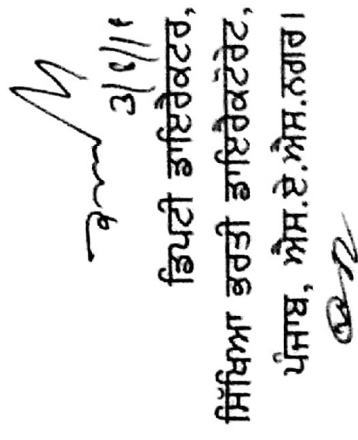 3/1/19
ਡਿਪਟੀ ਡਾਇਰੈਕਟਰ,
ਸਿੱਖਿਆ ਭਰਤੀ ਡਾਇਰੈਕਟੋਰੇਟ,
ਪੰਜਾਬ, ਐਸ.ਏ.ਐਸ.ਨਗਰ।